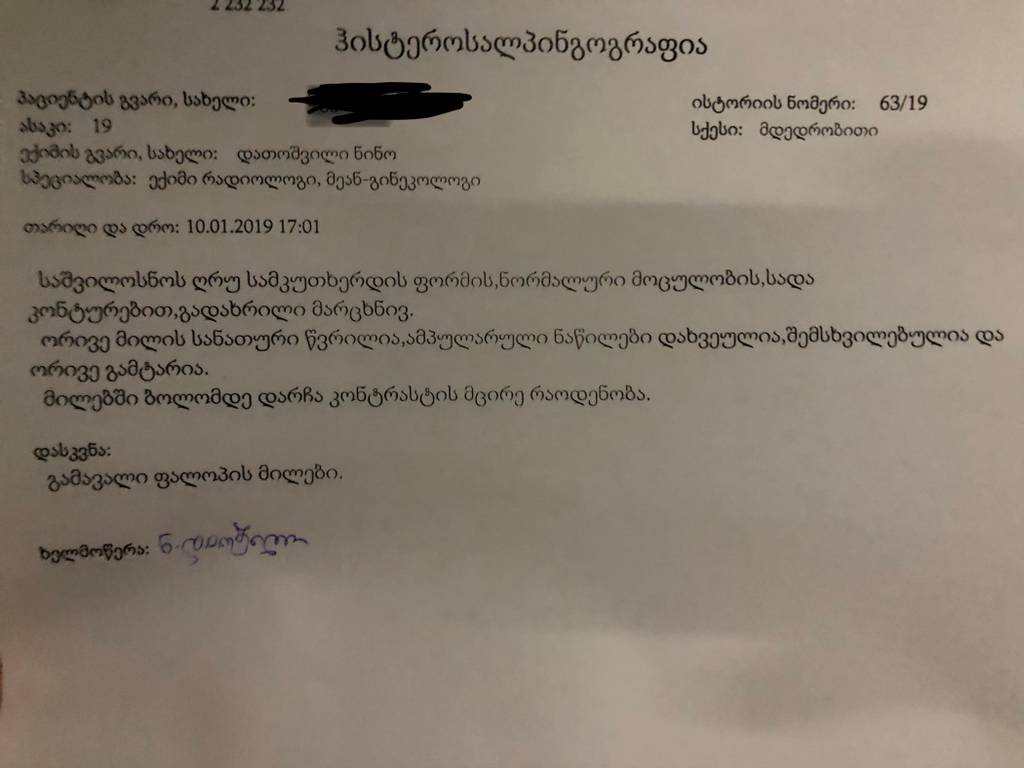 2 232 232
ჰისტეროსალპინგოგრაფია
პაციენტის გვარი, სახელი:
ისტორიის ნომერი: 63/19
ასაკი: 19
სქესი: მდედრობითი
ექიმის გვარი, სახელი: დათოშვილი ნინო
სპეციალობა: ექიმი რადიოლოგი, მეან-გინეკოლოგი
თარიღი და დრო: 10.01.2019 17:01
საშვილოსნოს ღრუ სამკუთხერდის ფორმის,ნორმალური მოცულობის,სადა
კონტურებით,გადახრილი მარცხნივ.
ორივე მილის სანათური წვრილია,ამპულარული ნაწილები დახვეულია,შემსხვილებულია და
ორივე გამტარია.
მილებში ბოლომდე დარჩა კონტრასტის მცირე რაოდენობა.
დასკვნა:
გამავალი ფალოპის მილები.
ხელმოწერა: ნ. დათოშვილი